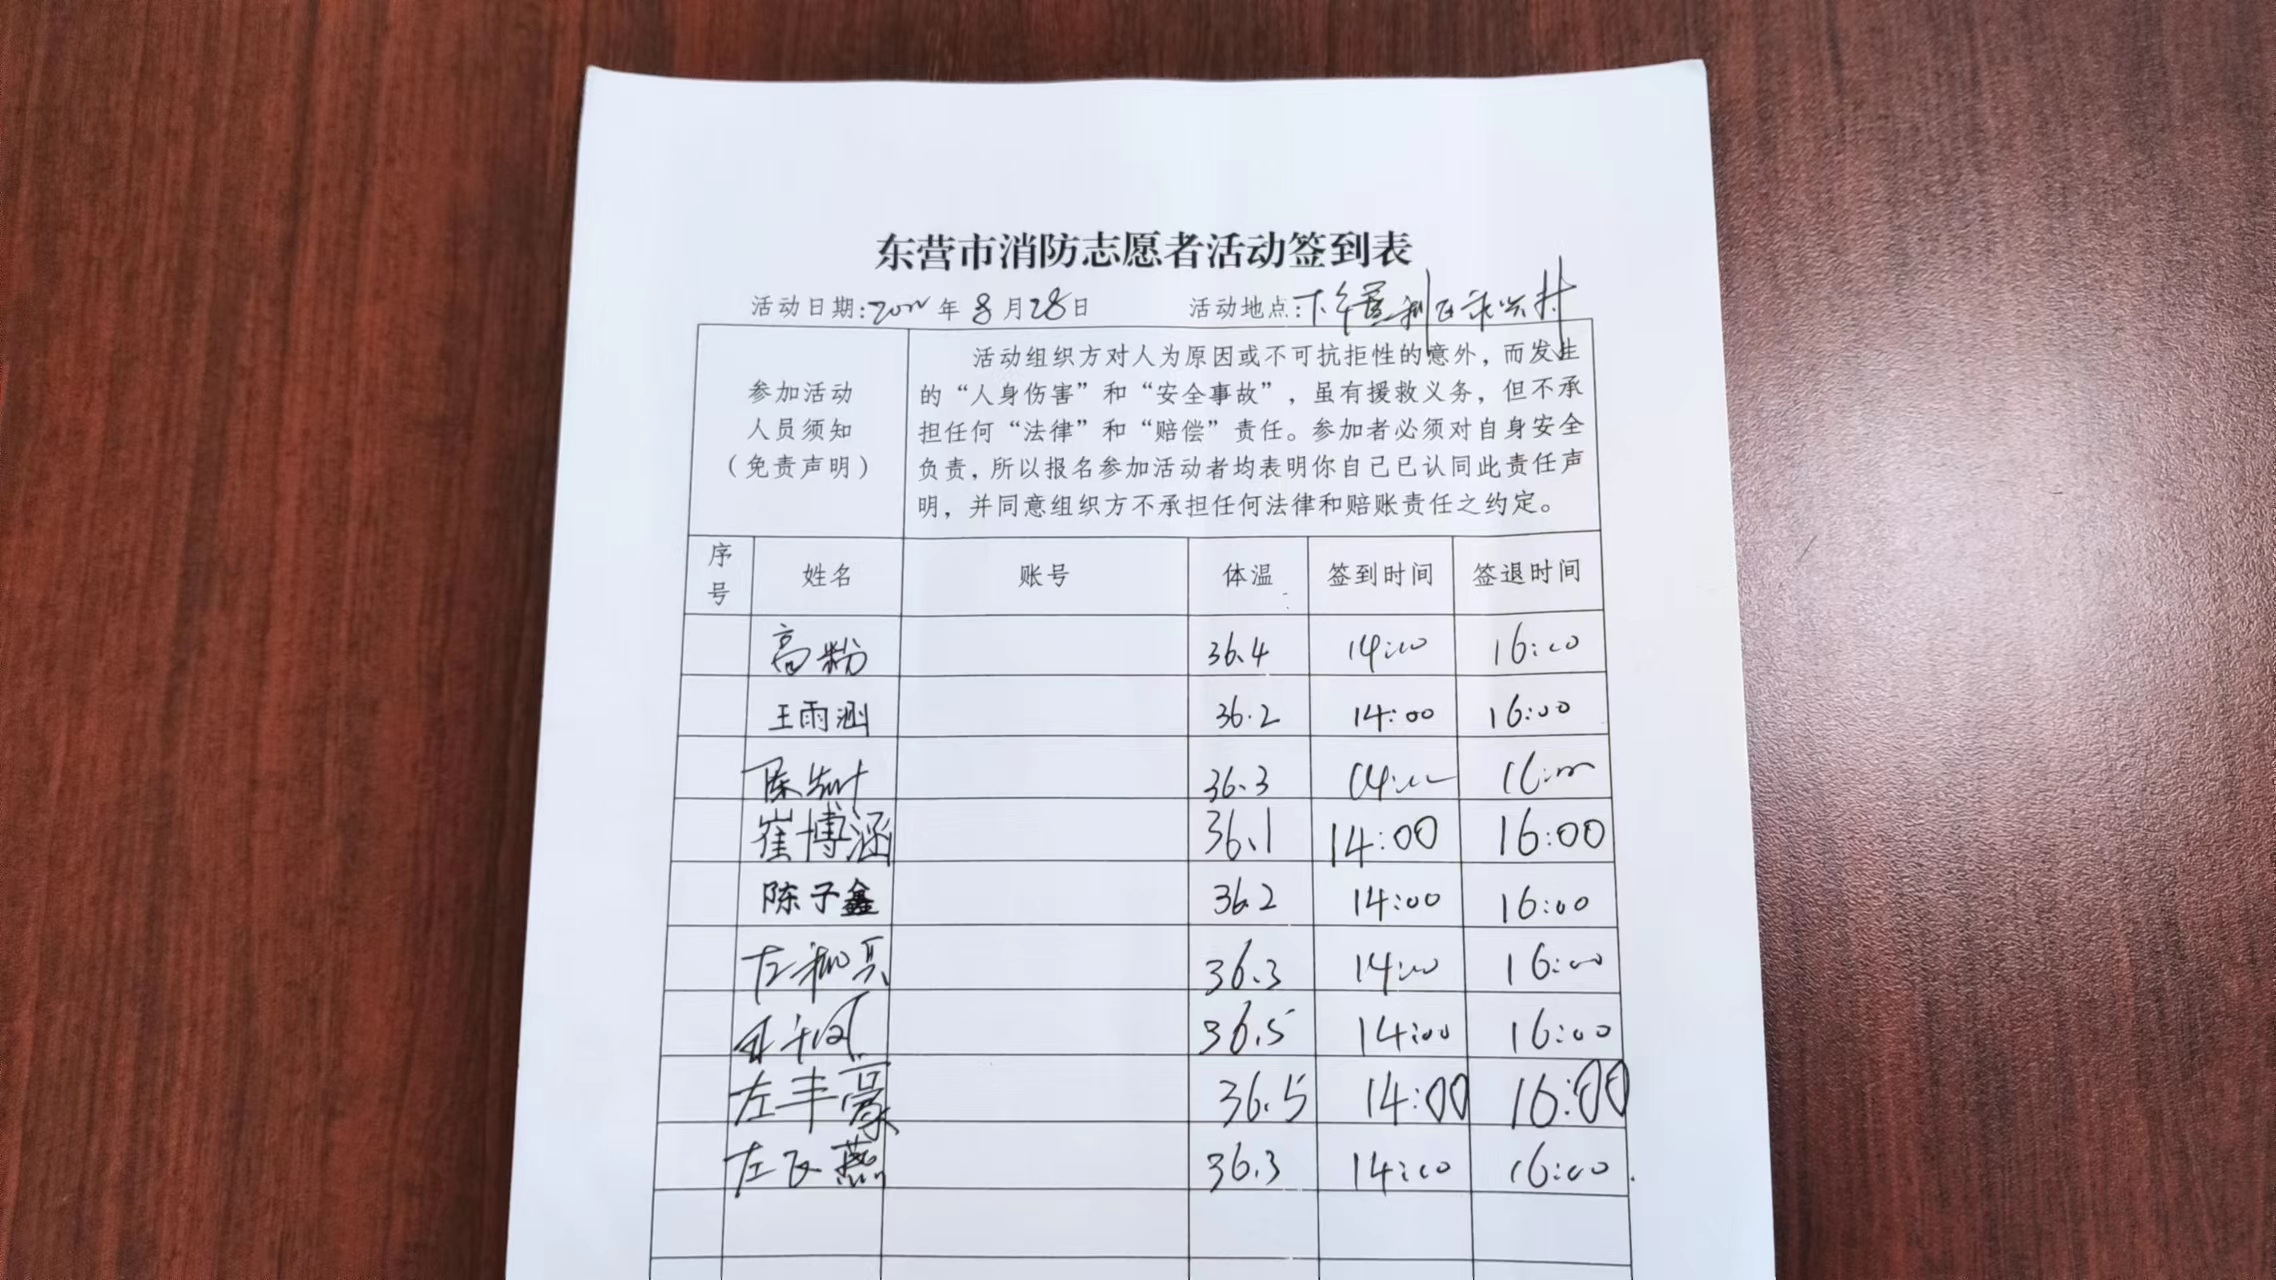 东营市消防志愿者活动签到表
活动日期:2022年8月28日 活动地点:
参加活动
人员须知
（免责声明）
活动组织方对人为原因或不可抗拒性的意外，而发生
的“人身伤害”和“安全事故”，虽有援救义务，但不承
担任何“法律”和“赔偿”责任。参加者必须对自身安全
负责，所以报名参加活动者均表明你自己已认同此责任声
明，并同意组织方不承担任何法律和赔账责任之约定。
序号 姓名 账号 体温 签到时间 签退时间
高粉 36.4 14:00 16:00
王雨涵 36.2 14:00 16:00
陈 36.3 14:00 16:00
崔博涵 36.1 14:00 16:00
陈子鑫 36.2 14:00 16:00
左 36.3 14:00 16:00
36.5 14:00 16:00
左丰豪 36.5 14:00 16:00
左飞燕 36.3 14:00 16:00